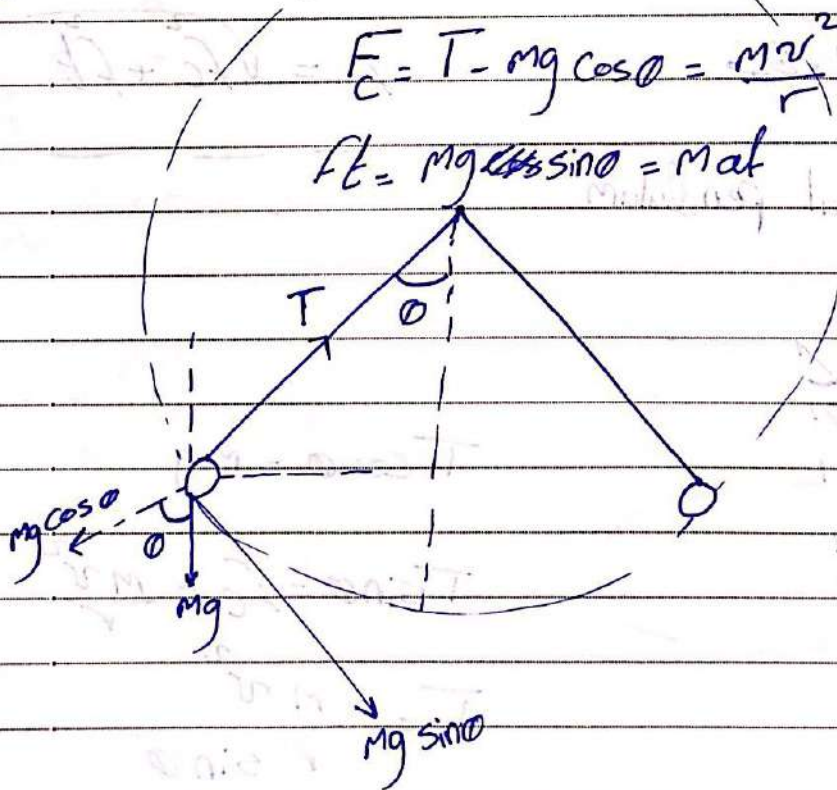 Fc = T - mg cosθ = mv²/r
ft = mg sinθ = mat
T
θ
mg cosθ
θ
mg
mg sinθ